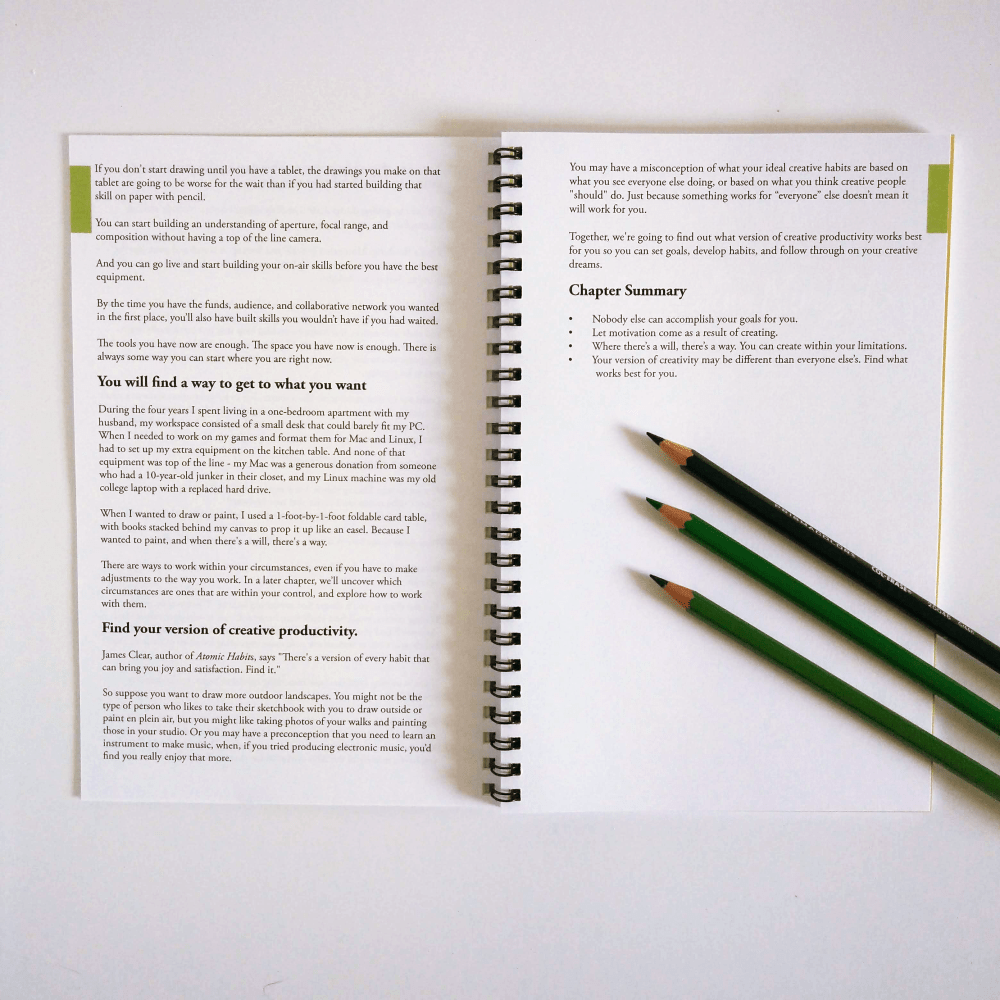 If you don't start drawing until you have a tablet, the drawings you make on that
tablet are going to be worse for the wait than if you had started building that
skill on paper with pencil.
You can start building an understanding of aperture, focal range, and
composition without having a top of the line camera.
And you can go live and start building your on-air skills before you have the best
equipment.
By the time you have the funds, audience, and collaborative network you wanted
in the first place, you'll also have built skills you wouldn't have if you had waited.
The tools you have now are enough. The space you have now is enough. There is
always some way you can start where you are right now.
You will find a way to get to what you want
During the four years I spent living in a one-bedroom apartment with my
husband, my workspace consisted of a small desk that could barely fit my PC.
When I needed to work on my games and format them for Mac and Linux, I
had to set up my extra equipment on the kitchen table. And none of that
equipment was top of the line - my Mac was a generous donation from someone
who had a 10-year-old junker in their closet, and my Linux machine was my old
college laptop with a replaced hard drive.
When I wanted to draw or paint, I used a 1-foot-by-1-foot foldable card table,
with books stacked behind my canvas to prop it up like an easel. Because I
wanted to paint, and when there's a will, there's a way.
There are ways to work within your circumstances, even if you have to make
adjustments to the way you work. In a later chapter, we'll uncover which
circumstances are ones that are within your control, and explore how to work
with them.
Find your version of creative productivity.
James Clear, author of Atomic Habits, says "There's a version of every habit that
can bring you joy and satisfaction. Find it."
So suppose you want to draw more outdoor landscapes. You might not be the
type of person who likes to take their sketchbook with you to draw outside or
paint en plein air, but you might like taking photos of your walks and painting
those in your studio. Or you may have a preconception that you need to learn an
instrument to make music, when, if you tried producing electronic music, you'd
find you really enjoy that more.
You may have a misconception of what your ideal creative habits are based on
what you see everyone else doing, or based on what you think creative people
"should" do. Just because something works for “everyone” else doesn't mean it
will work for you.
Together, we're going to find out what version of creative productivity works best
for you so you can set goals, develop habits, and follow through on your creative
dreams.
Chapter Summary
• Nobody else can accomplish your goals for you.
• Let motivation come as a result of creating.
• Where there's a will, there's a way. You can create within your limitations.
• Your version of creativity may be different than everyone else's. Find what
works best for you.